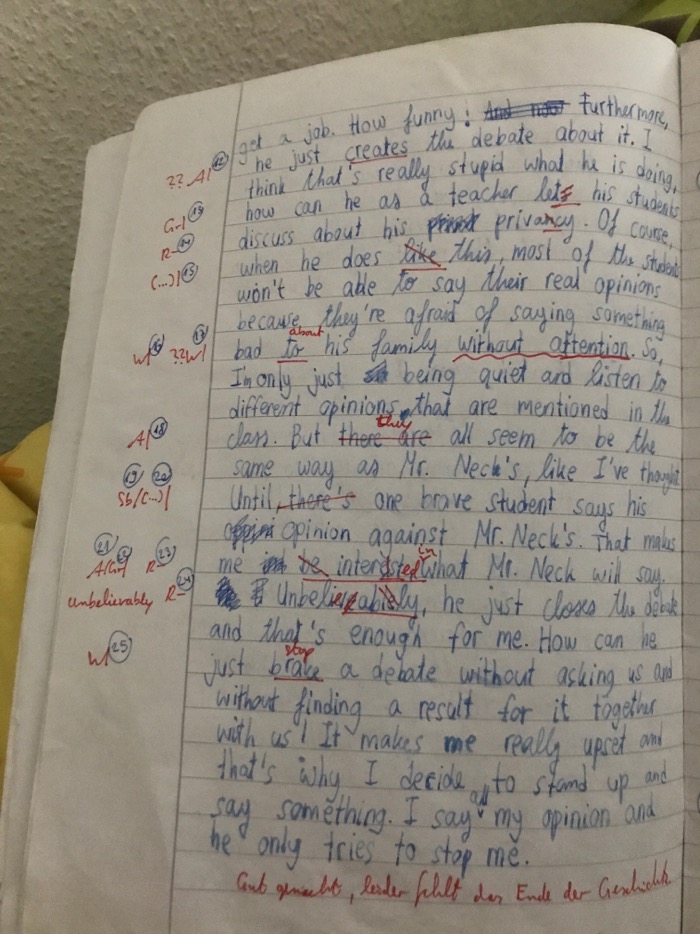 get a job. How funny! Furthermore,
?? A| 12 he just creates the debate about it. I
think that's really stupid what he is doing,
Gr| 13 how can he as a teacher lets his students
R- 14 discuss about his privancy. Of course,
(...)| 15 when he does like this, most of the students
won't be able to say their real opinions
because they're afraid of saying something
about
W| 16 ??W| 17 bad to his family without attention. So,
I'm only just being quiet and listen to
different opinions, that are mentioned in the
they
A| 18 class. But there are all seem to be the
same way as Mr. Neck's, like I've thought
19 20 Sb/(...)| Until, there's one brave student says his
opinion against Mr. Neck's. That makes
in
21 A|Gr| R- 23 me be interested what Mr. Neck will say.
unbelievably R- 24 he just closes the debate
and that's enough for me. How can he
stop
W| 25 just brake a debate without asking us and
without finding a result for it together
with us! It makes me really upset and
that's why I decide to stand up and
all
say something. I say my opinion and
he only tries to stop me.
Gut gemacht, leider fehlt das Ende der Geschichte